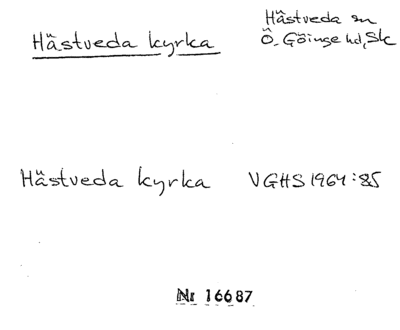 Hästveda kyrka
Hästveda sn
Ö. Göinge hd, Sk
Hästveda kyrka VGHS 1964:85
Nr 16687